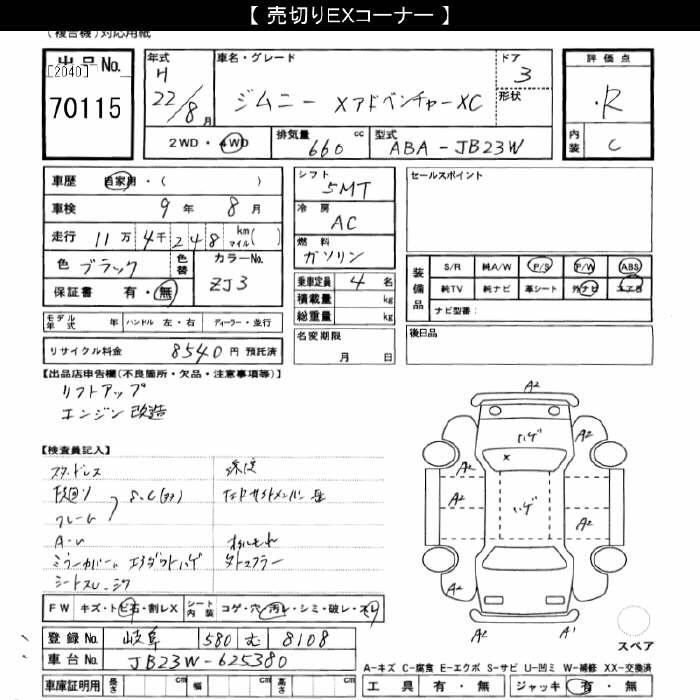 【 売切りEXコーナー 】
(複合機)対応用紙
出品No. [2040] 70115
年式 H 22/8月
車名・グレード ジムニー XアドベンチャーXC
ドア 3
形状
評価点 R
内装 C
2WD・4WD
排気量 660 cc
型式 ABA-JB23W
車歴 自家用・( )
車検 9年 8月
走行 11万4千248 km マイル( )
色 ブラック 色替
カラーNo. ZJ3
保証書 有・無
モデル年式 年 ハンドル 左・右 ディーラー・並行
リサイクル料金 8540円 預託済
シフト 5MT
冷房 AC
燃料 ガソリン
乗車定員 4名
積載量 kg
総重量 kg
名変期限 月 日
セールスポイント
装備品 S/R 純A/W P/S P/W ABS
純TV 純ナビ 革シート 外ナビ エアB
ナビ型番:
後日品
【出品店申告欄(不良箇所・欠品・注意事項等)】
リフトアップ
エンジン改造
【検査員記入】
スタッドレス
下廻り
フレーム
マフラー
A2
A2
A2
A2
A2
A2
A2
A2
A2
A1
ハゲ
ハゲ
×
FW キズ・トビ石・割レX
シート内装 コゲ・穴・汚レ・シミ・破レ・スレ
登録No. 岐阜 580 む 8108
車台No. JB23W-625380
車庫証明用 長さ cm 幅 cm 高さ cm
スペア
A-キズ C-腐食 E-エクボ S-サビ U-凹ミ W-補修 XX-交換済
工具 有・無 ジャッキ 有・無